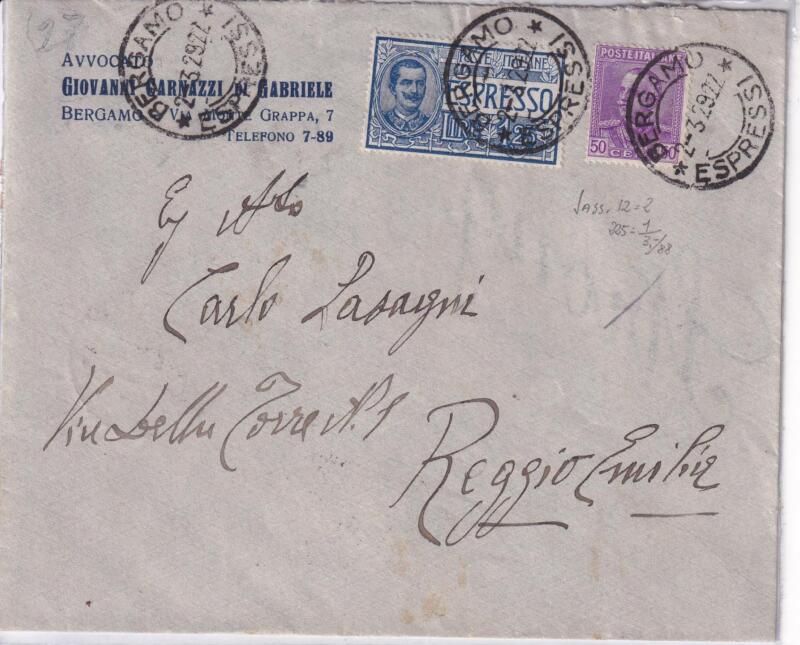 27
AVVOCATO
GIOVANNI CARNAZZI DI GABRIELE
BERGAMO - VIA MONTE GRAPPA, 7
TELEFONO 7-89
BERGAMO * ESPRESSI *
2-3.29.22
POSTE ITALIANE
ESPRESSO
LIRE 1,25
BERGAMO * ESPRESSI *
2-3.29.22
POSTE ITALIANE
50 CENT 50
BERGAMO * ESPRESSI *
2-3.29.22
Sass. 12=2
225=1
3,-/88
Carlo Lasagni
Via Della Torre N. 1
Reggio Emilia